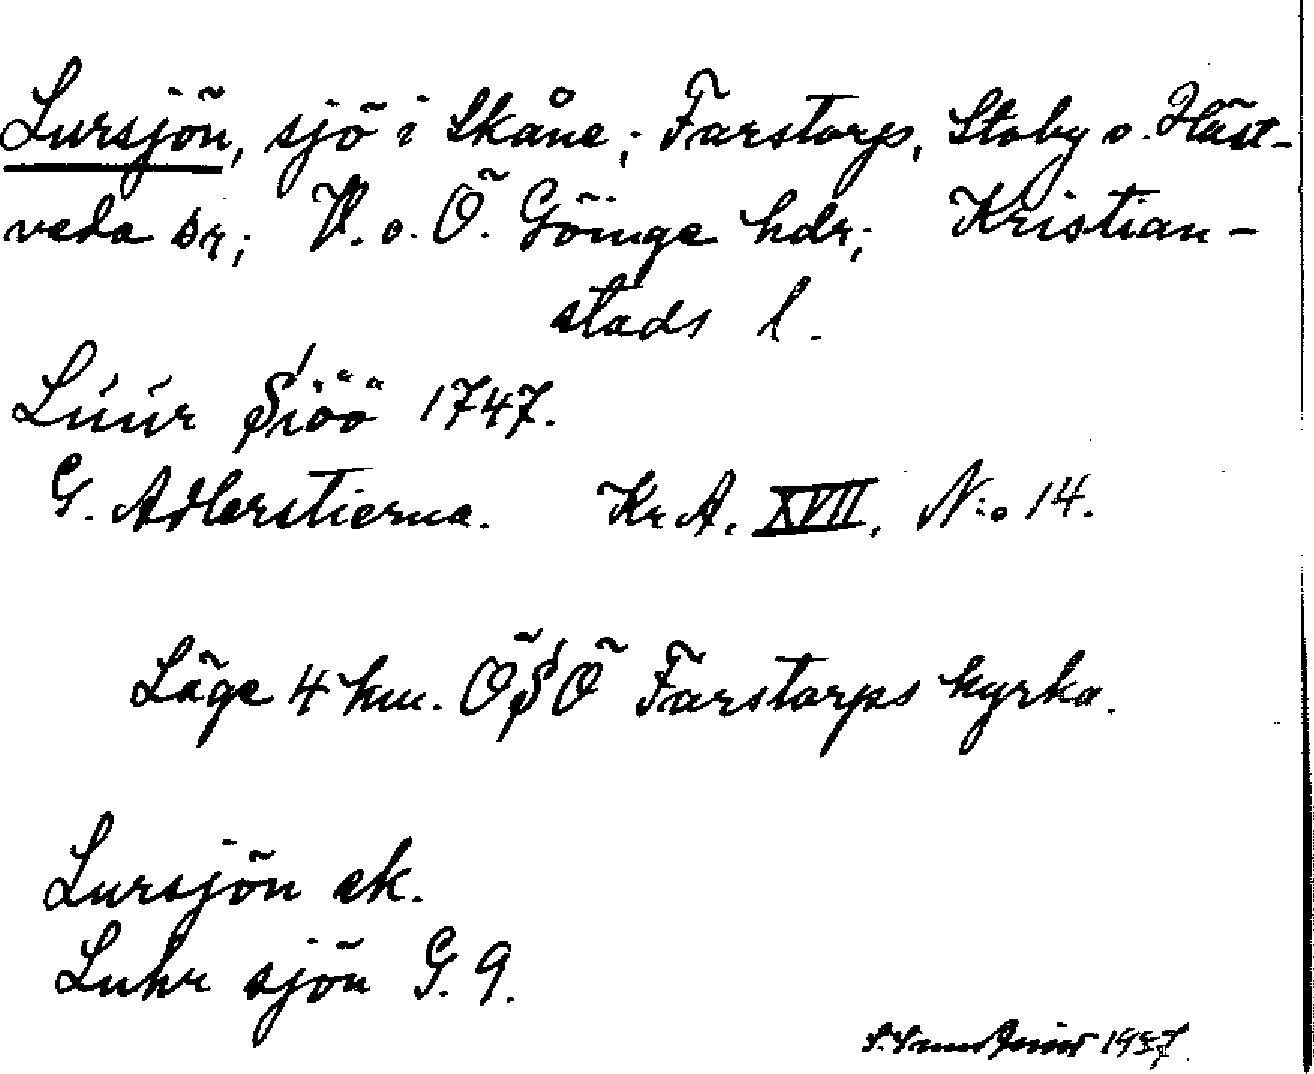 Lursjön, sjö i Skåne; Farstorp, Stoby o. Häst-
veda sr; V. o. Ö. Göinge hdr; Kristian-
stads l.
Lúúr Siöö 1747.
G. Adlerstierna. Kr. A. XVII, N:o 14.
Läge 4 km. ÖSÖ Farstorps kyrka.
Lursjön ek.
Luhr sjön G. 9.
1937.